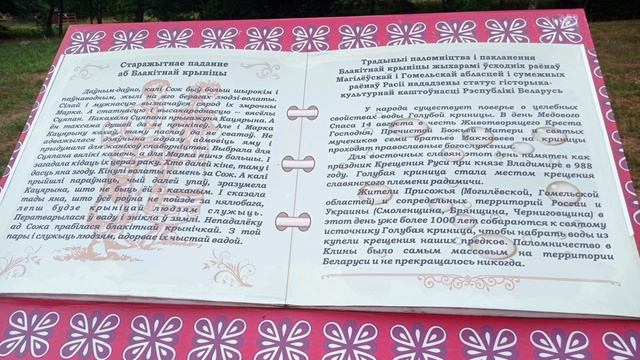 Старажытнае паданне
аб Блакітнай крыніцы
Даўным-даўно, калі Сож быў больш шырокім і
паўнаводным, жылі на яго берагах людзі-волаты.
Сілай і мужнасцю вызначаўся сярод іх змрочны
Марка. А статнасцю і высакароднасцю – вясёлы
Сцяпан. Пакахала Сцяпана прыгажуня Кацярына. А
ён таксама душой да яе прыкіпеў. Але і Марка
Кацярыну кахаў, таму наслаў на яе сватоў. Не
адважылася дзяўчына адразу адмовіць яму і
прыдумала для жаніхоў спаборніцтва. Выбрала для
Сцяпана вялікі камень, а для Марка яшчэ большы. І
загадала кідаць іх цераз раку. Хто далей кіне, таму і
дасць яна згоду. Кінулі волаты камяні за Сож. А калі
прыйшлі паглядзець, чый далей упаў, зразумела
Кацярына, што не быць ёй з каханым. І сказала
тады яна, што ўсё роўна не пойдзе за нялюбага,
лепш будзе крыніцай людзям служыць.
Ператварылася ў ваду і знікла ў зямлі. Непадалёку
ад Сожа прабілася блакітнай крынічкай. З той
пары і служыць людзям, адорвае іх чыстай вадой.
Традыцыі паломніцтва і пакланення
Блакітнай крыніцы жыхарамі ўсходніх раёнаў
Магілёўскай і Гомельскай абласцей і сумежных
раёнаў Расіі нададзены статус гісторыка-
культурнай каштоўнасці Рэспублікі Беларусь
У народа существует поверье о целебных
свойствах воды Голубой криницы. В день Медового
Спаса 14 августа в честь Животворящего Креста
Господня, Пречистой Божьей Матери и святых
мучеников семи братьев Маккавеев на криницы
проходят православные богослужения.
Для восточных славян этот день памятен как
праздник Крещения Руси при князе Владимире в 988
году. Голубая криница стала местом крещения
славянского племени радимичи.
Жители Присожья (Могилёвской, Гомельской
областей) и сопредельных территорий России и
Украины (Смоленщина, Брянщина, Черниговщина) в
этот день уже более 1000 лет собираются к святому
источнику Голубая криница, чтобы набрать воды из
купели крещения наших предков. Паломничество в
Клины было самым массовым на территории
Беларуси и не прекращалось никогда.